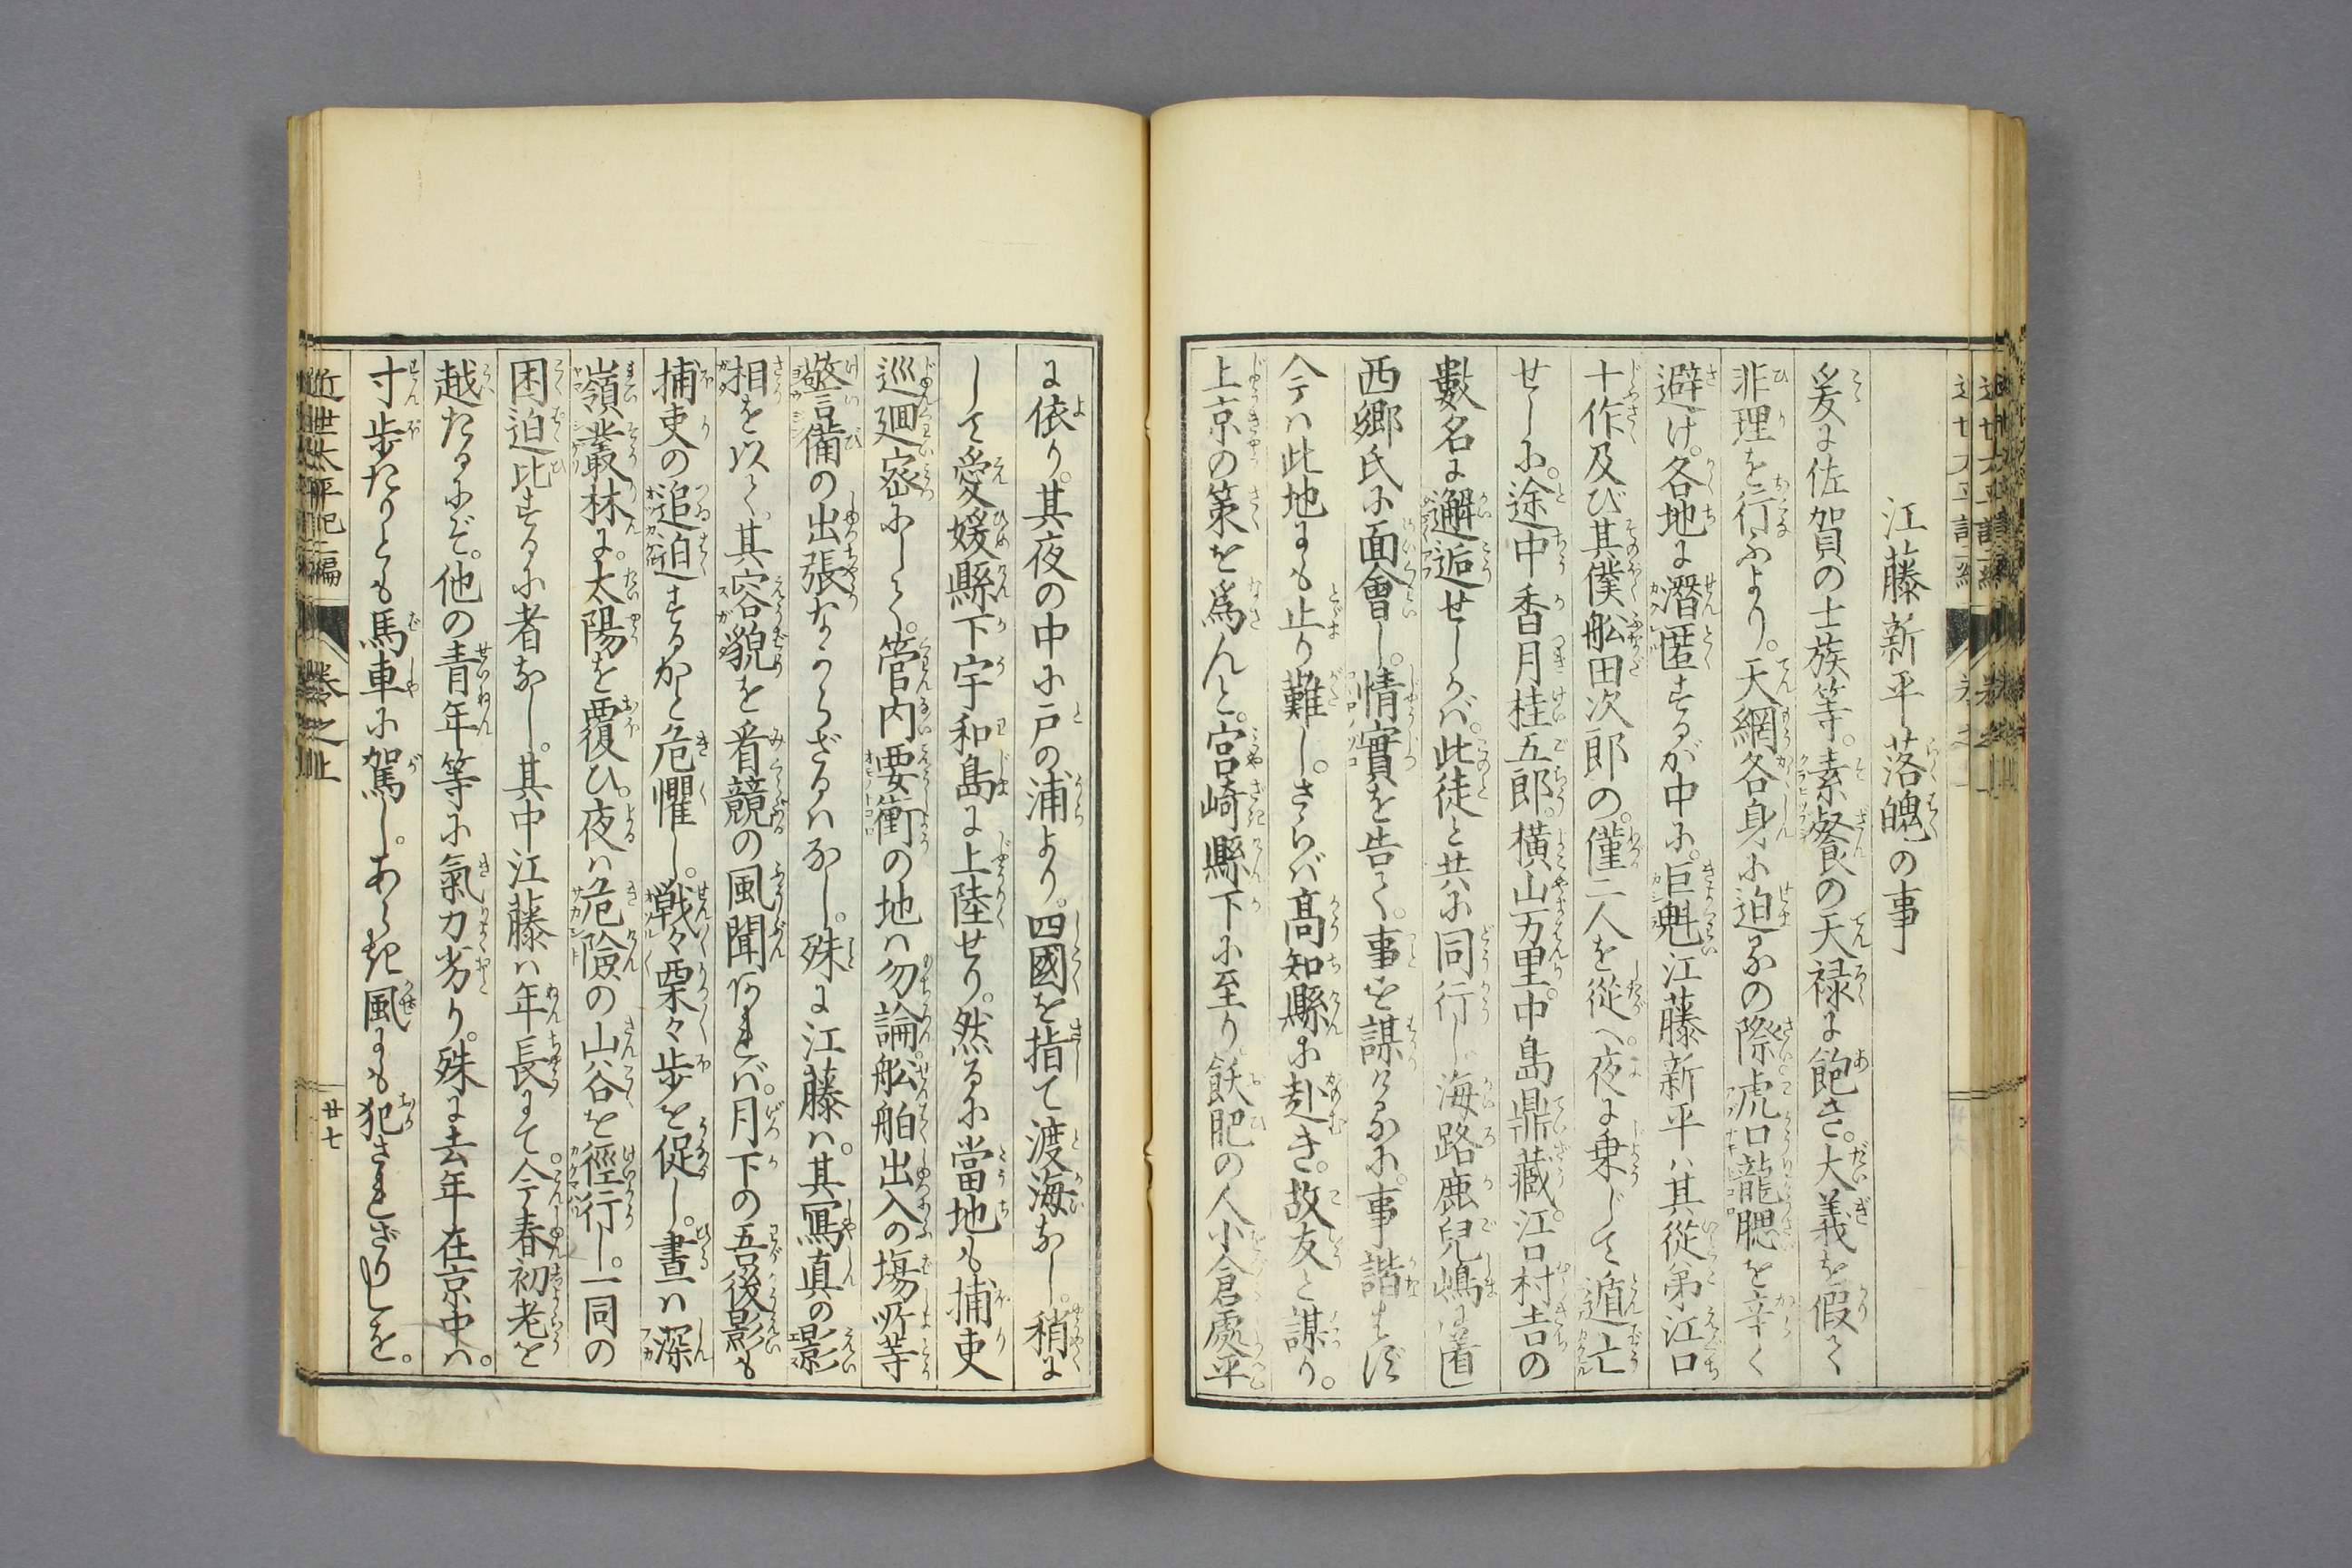 江藤新平落魄の事
爰に佐賀の士族等。素餐の天禄に飽き。大義を假て
非理を行ふより。天網各身に迫るの際。虎口龍腮を辛く
避け。各地に潜匿するが中に。巨魁江藤新平ハ其從弟江口
十作及び其僕舩田次郎の。僅二人を從へ。夜に乗じて遁亡
せしに。途中香月桂五郎。横山万里。中島鼎藏。江口村吉の
數名に邂逅せしかバ。此徒と共に同行し。海路鹿兒嶋に
西郷氏に面會し。情實を告て。事を謀けるに。事諧はず
今ハ此地にも止り難し。さらバ髙知縣に赴き。故友と謀り。
上京の策を爲んと。宮崎縣下に至り飫肥の人小倉處平
に依り。其夜の中に戸の浦より。四國を指て渡海なし。稍に
して愛媛縣下宇和島に上陸せり。然るに當地も捕吏
巡廻密にして。管内要衝の地ハ勿論。舩舶出入の塲所等
警備の出張なからざるハなし。殊に江藤ハ。其寫真の影
相を以て。其容貌を看競の風聞あれバ。月下の吾後影も
捕吏の追迫するかと危懼し。戦々栗々歩を促し。晝ハ深
嶺叢林に。太陽を覆ひ。夜ハ危險の山谷を徑行し。一同の
困迫比するに者なし。其中江藤ハ年長にて。今春初老を
越たるにぞ。他の青年等に氣力劣り。殊に去年在京中ハ。
寸歩たりとも馬車に駕し。あらき風にも犯されざりしを。
近世太平記二編 巻之上 廿七